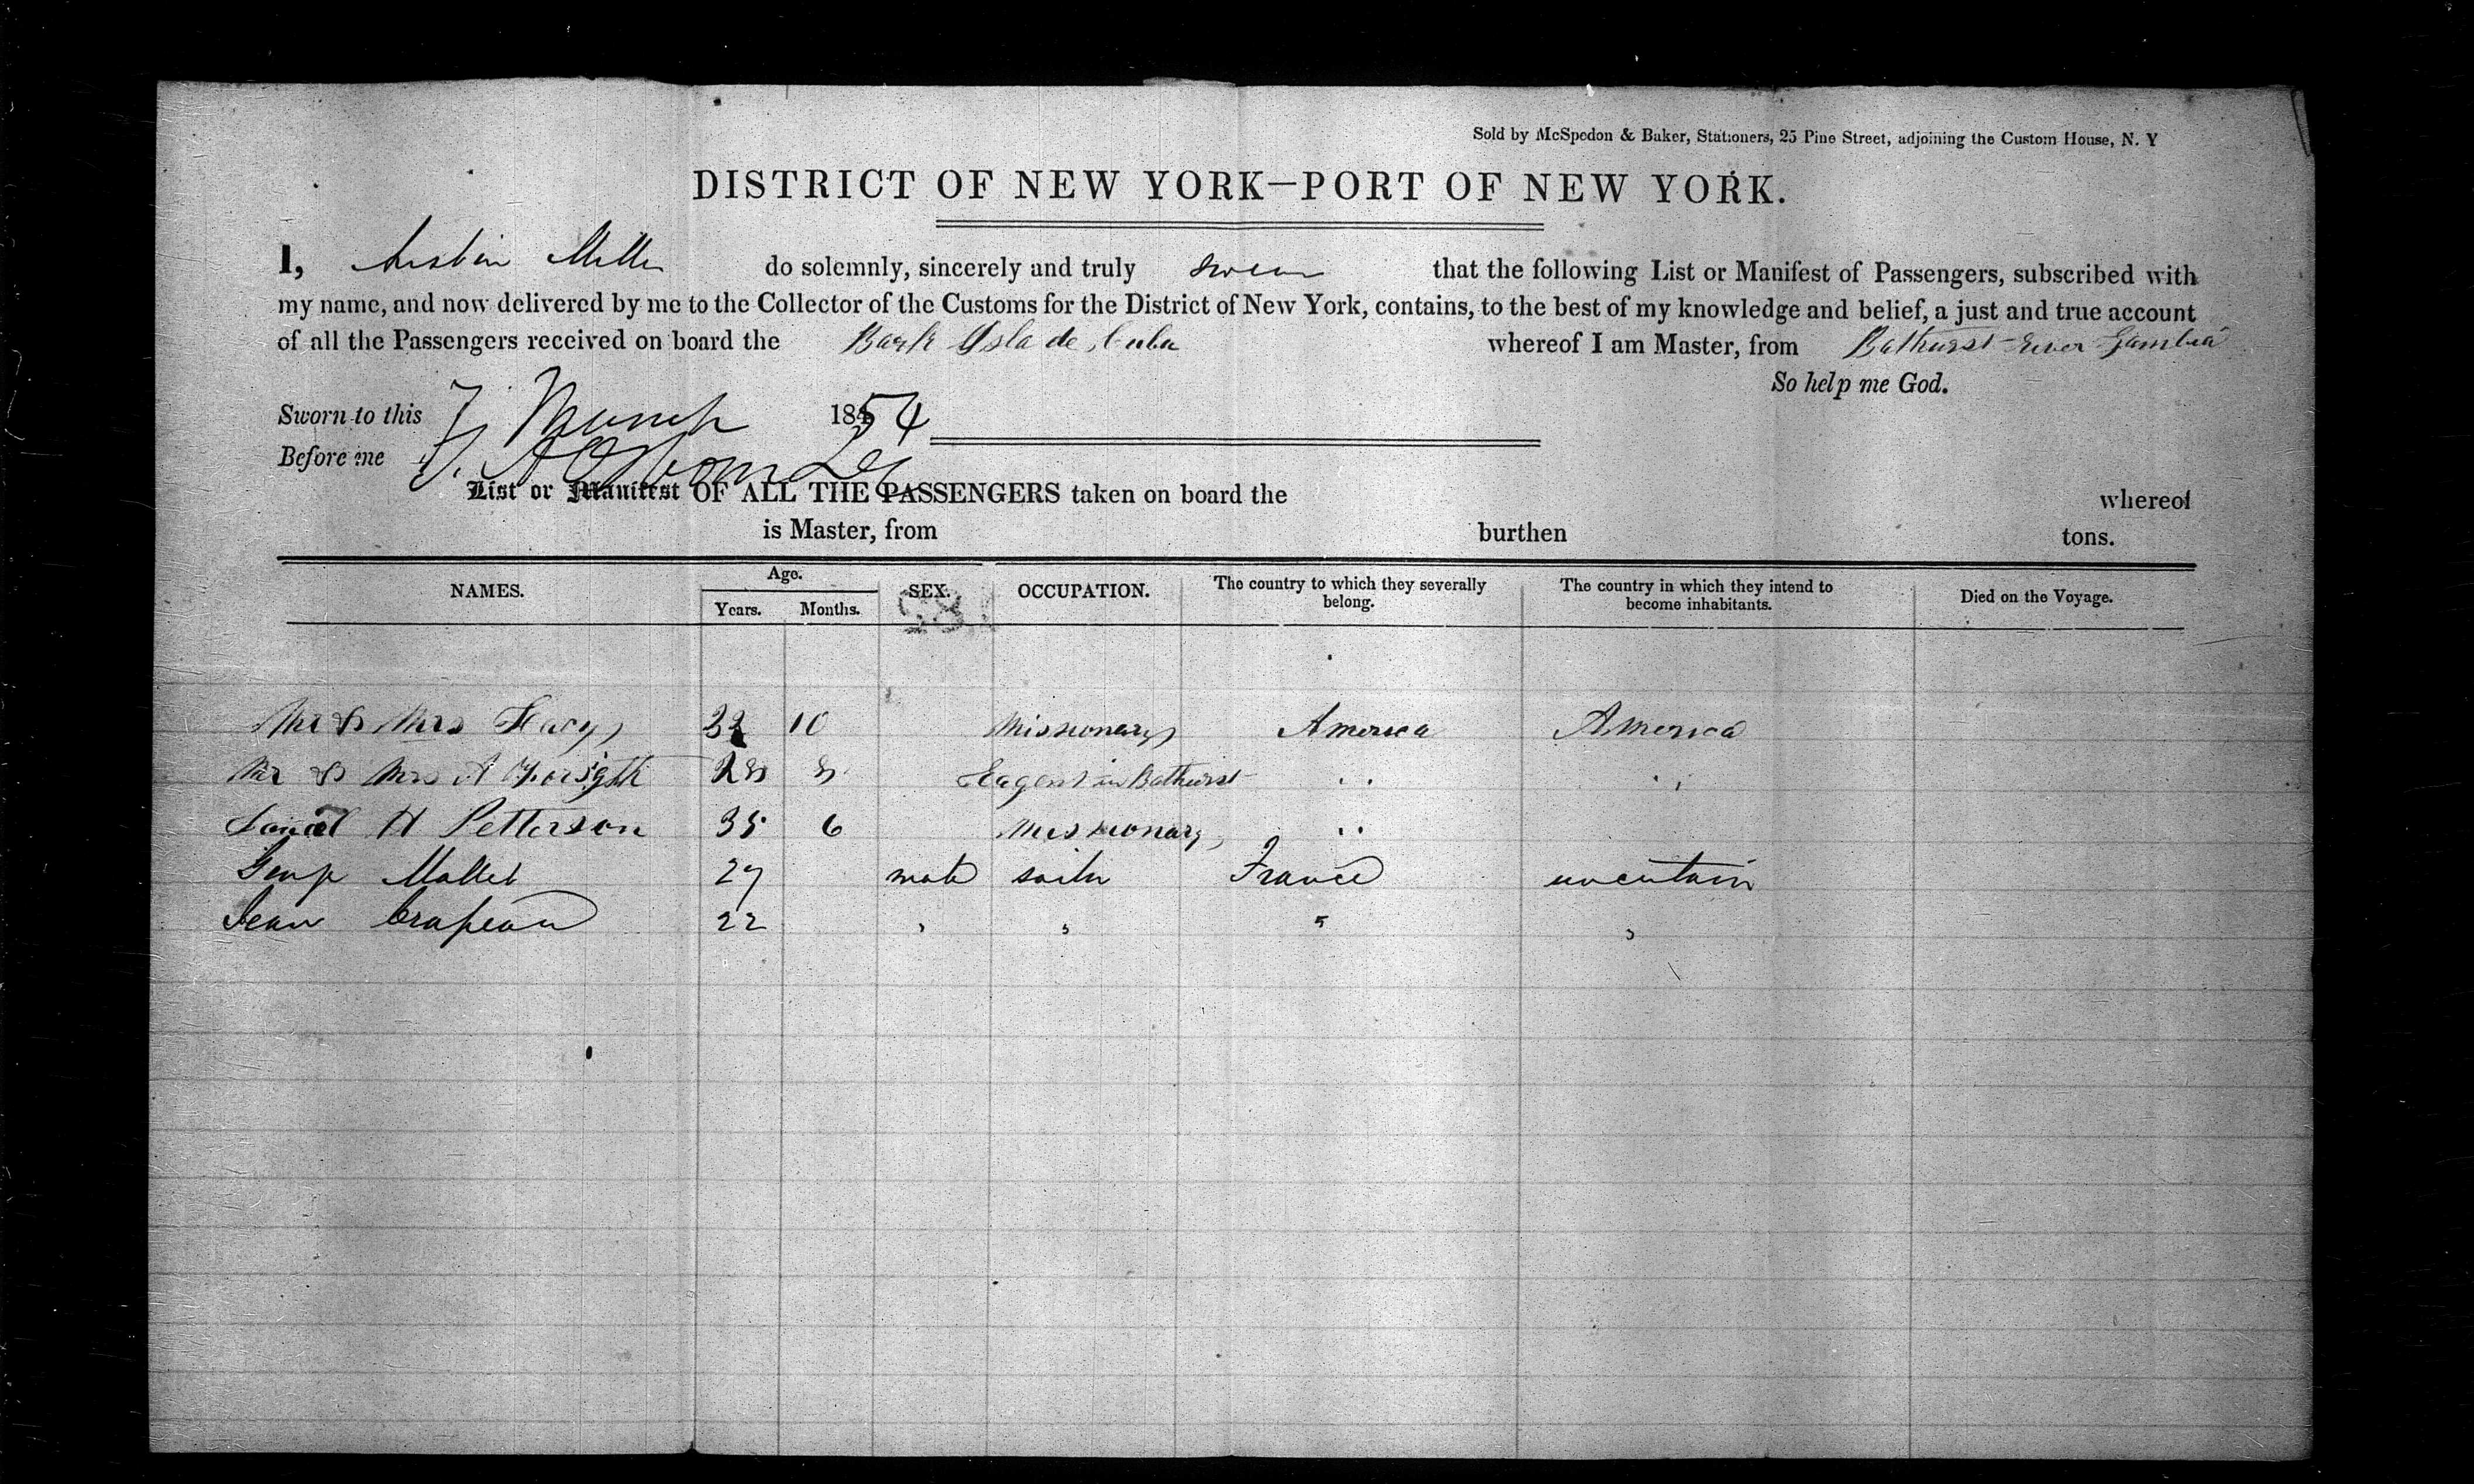 Sold by McSpedon & Baker, Stationers, 25 Pine Street, adjoining the Custom House, N. Y
DISTRICT OF NEW YORK—PORT OF NEW YORK.
I, Austin Miller do solemnly, sincerely and truly swear that the following List or Manifest of Passengers, subscribed with
my name, and now delivered by me to the Collector of the Customs for the District of New York, contains, to the best of my knowledge and belief, a just and true account
of all the Passengers received on board the Bark Isla de Cuba whereof I am Master, from Bathurst River Gambia
So help me God.
Sworn to this 7 March 1854
Before me
List or Manifest OF ALL THE PASSENGERS taken on board the whereof
is Master, from burthen tons.
NAMES. Age. Years. Months. SEX. OCCUPATION. The country to which they severally belong. The country in which they intend to become inhabitants. Died on the Voyage.
Mr & Mrs 10 Missionary America America
Mr & Mrs A 28 8 agent in Bathurst " "
H Petterson 35 6 Missionary "
Mallet 27 male sailor France uncertain
Jean Crapeau 22 " " " "